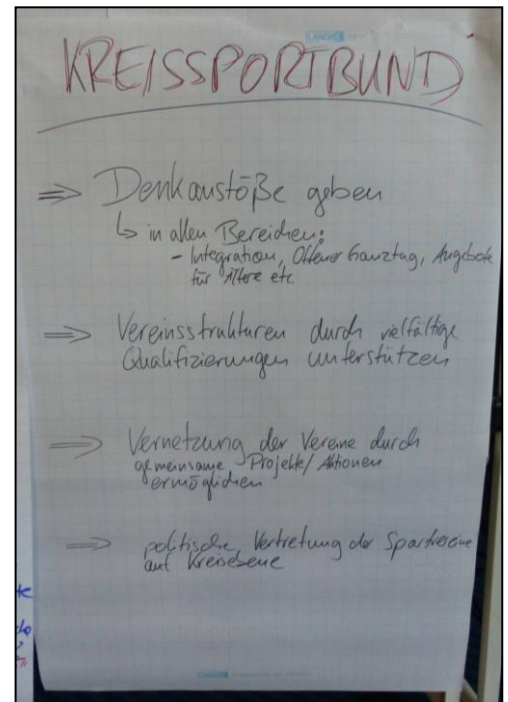 LANDRÉ
KREISSPORTBUND
⇒ Denkanstöße geben
↳ in allen Bereichen:
- Integration, Offener Ganztag, Angebote
für Ältere etc.
⇒ Vereinsstrukturen durch vielfältige
Qualifizierungen unterstützen
⇒ Vernetzung der Vereine durch
gemeinsame Projekte/Aktionen
ermöglichen
⇒ politische Vertretung der Sportvereine
auf Kreisebene
LANDRÉ